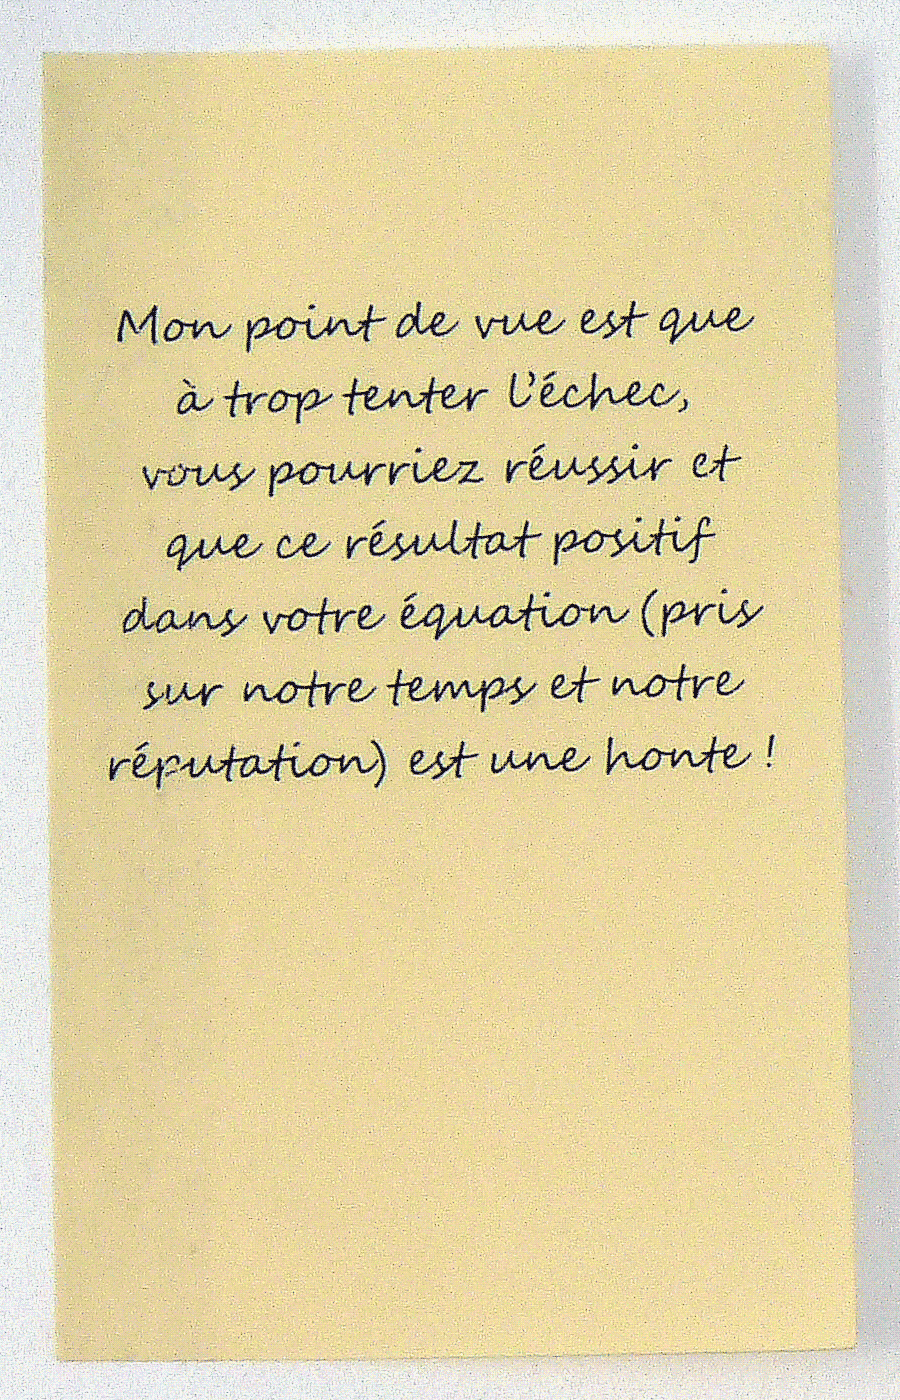 Mon point de vue est que
à trop tenter l'échec,
vous pourriez réussir et
que ce résultat positif
dans votre équation (pris
sur notre temps et notre
réputation) est une honte !